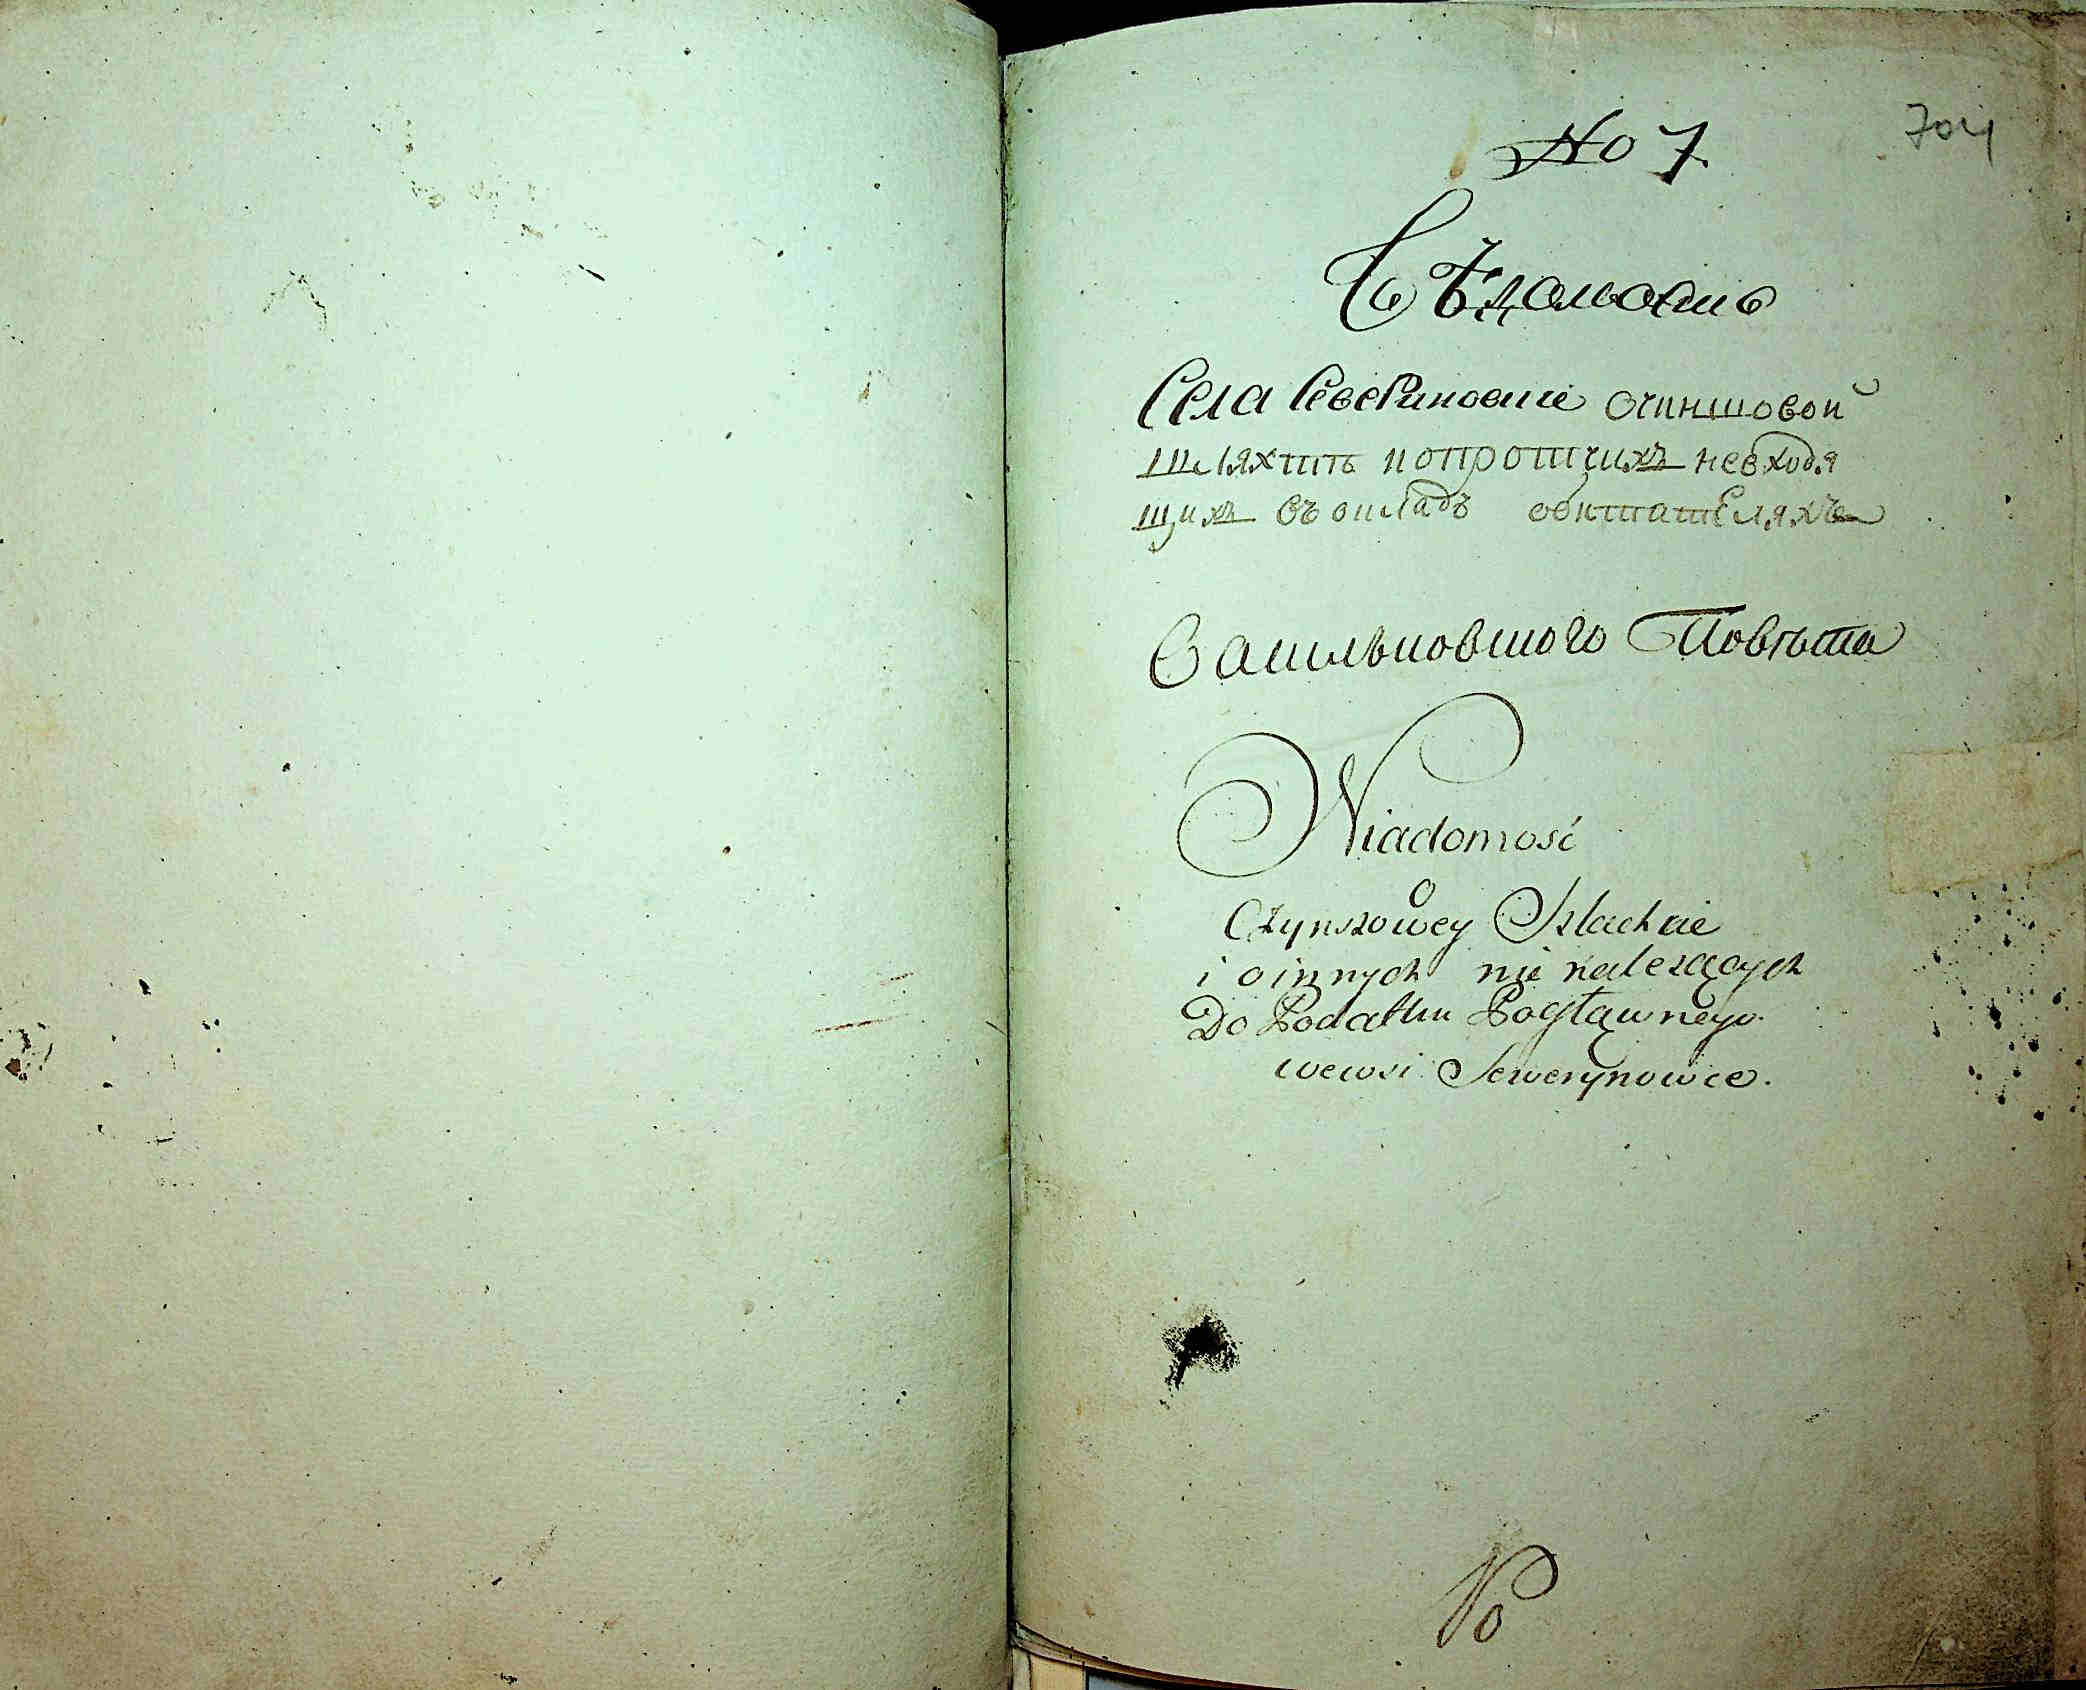 704
No 7
Вѣдомость
Села Севериновки очиншовой
шляхтѣ и о протчихъ невходя
щихъ въ окладъ обитателяхъ
Васильковского Повѣта
Wiadomość
O
Czynszowey Szlachcie
i o innych nie należących
Do Podatku Pogławnego
we wsi Sewerynowce.
No